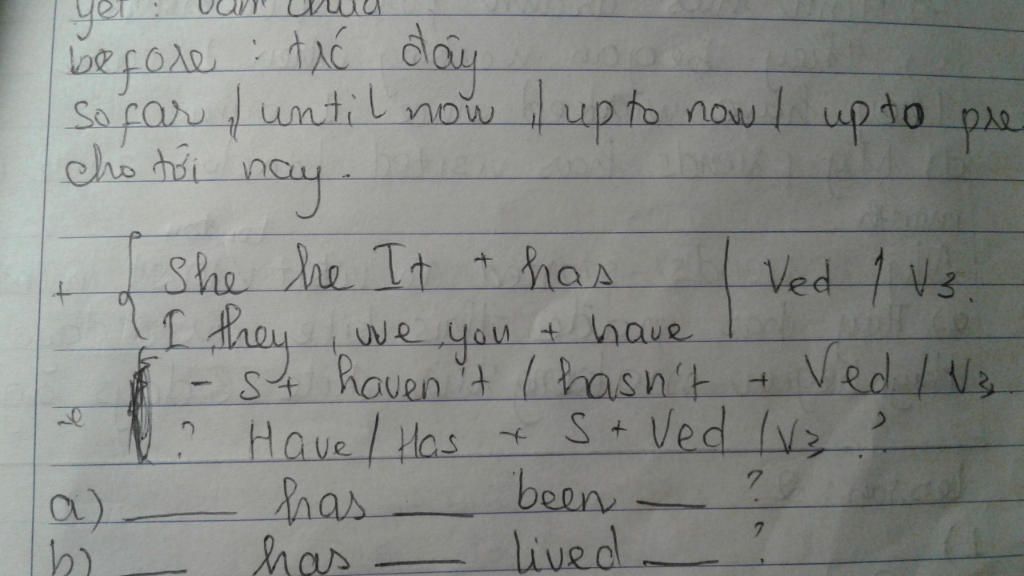 yet : vẫn chưa
before : trc đây
so far / until now / up to now / up to pre
cho tới nay.
+ { She he It + has | Ved / V3.
I, they, we, you + have
- S + haven't / hasn't + Ved / V3
? Have / Has + S + Ved / V3 ?
a) ___ has ___ been ___ ?
b) ___ has ___ lived ___ ?